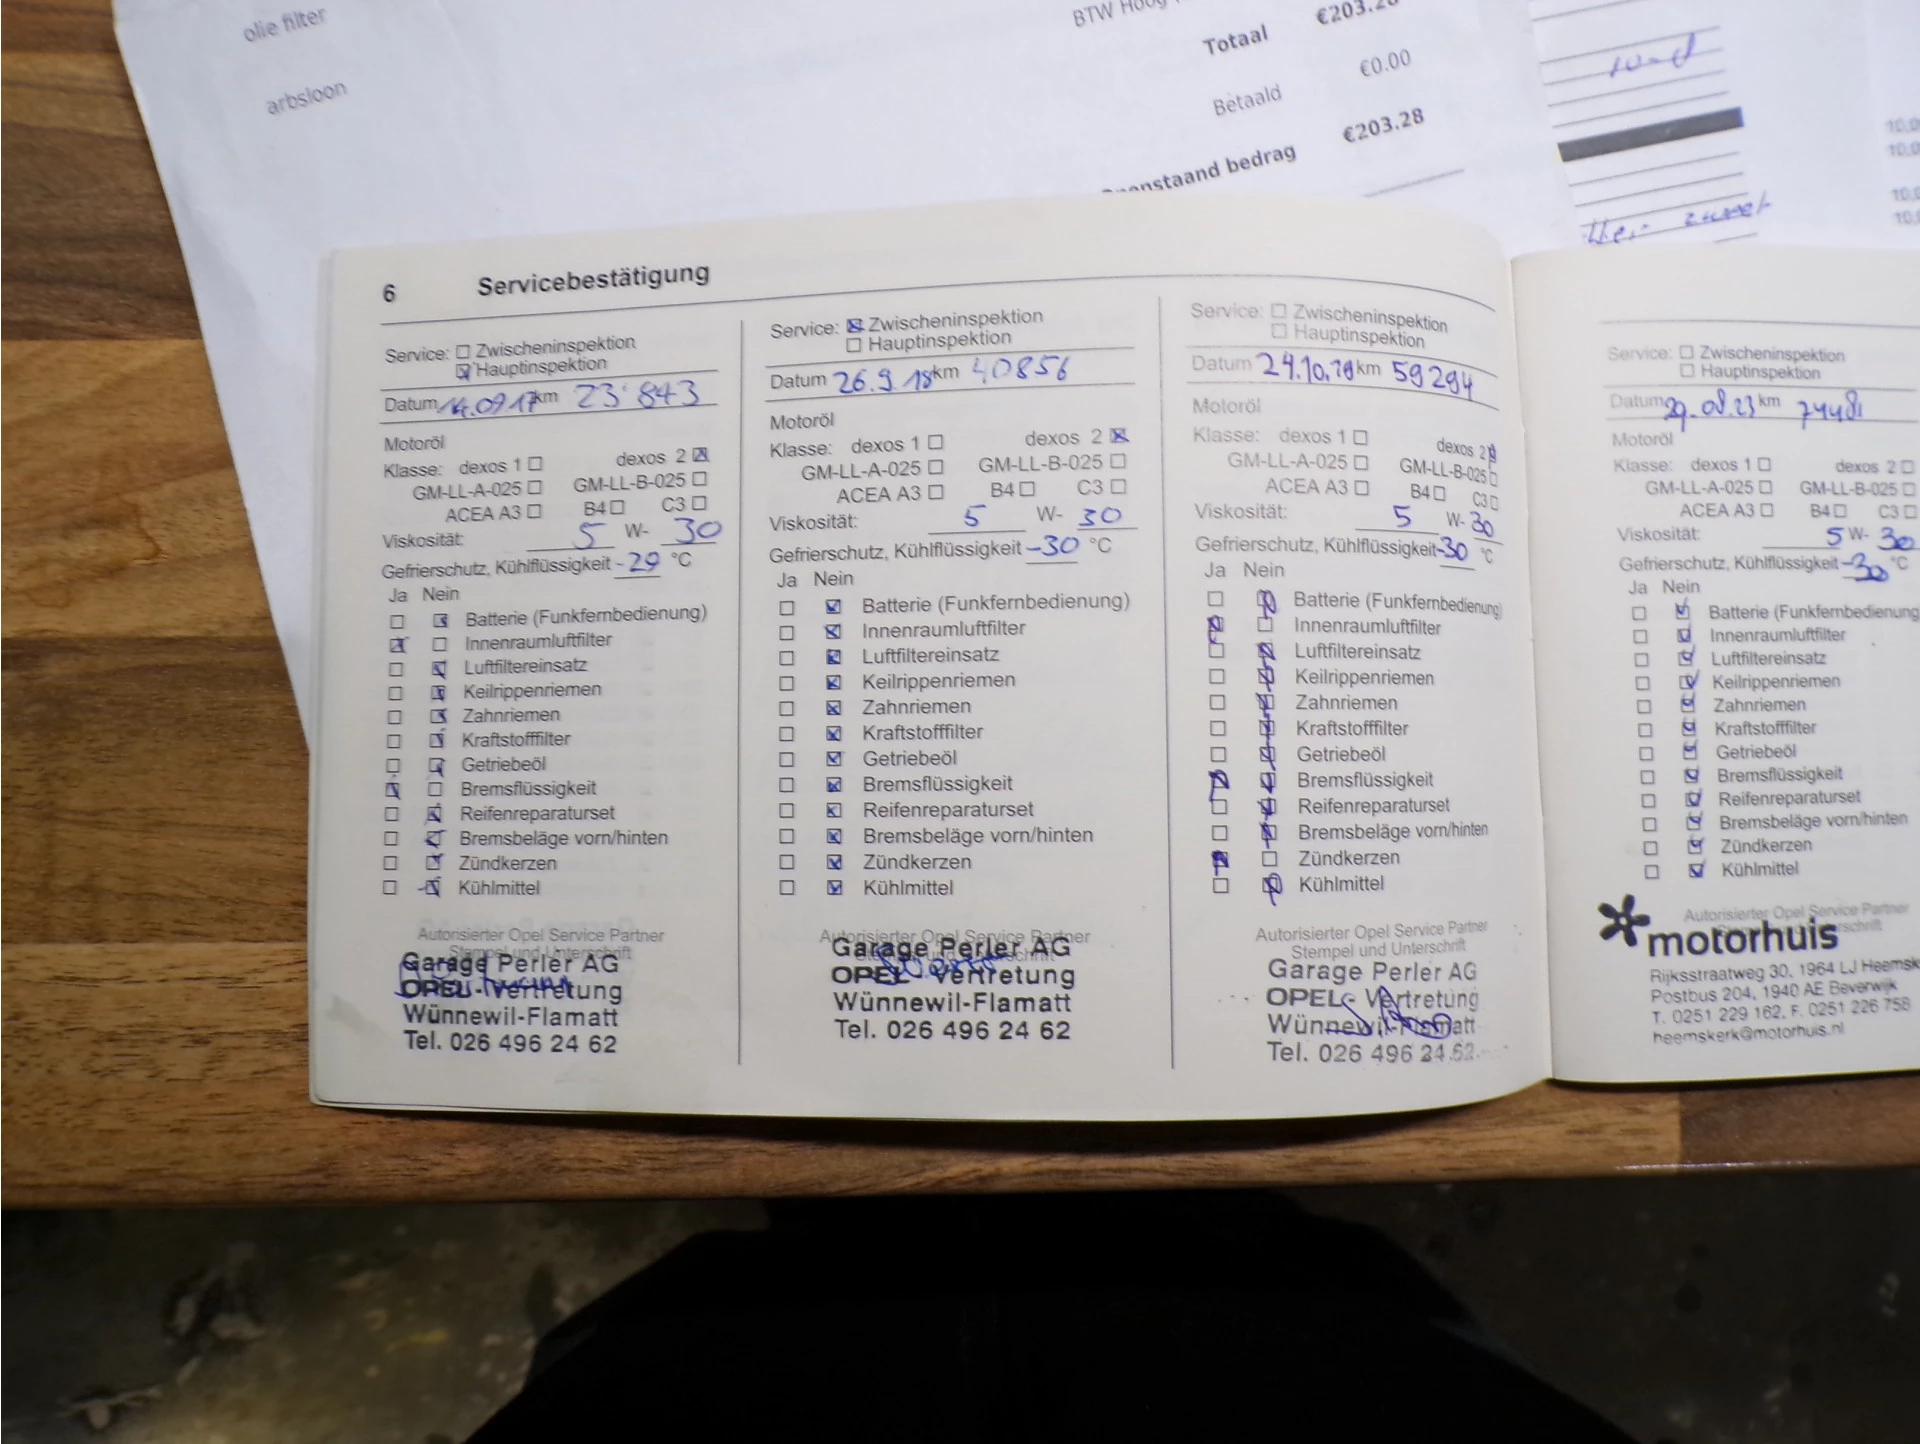 olie filter
arbsloon
BTW Hoog
Totaal €203.28
Betaald €0.00
bedrag €203.28
10,0
10,0
10,0
10,0
6 Servicebestätigung
Service: ☐ Zwischeninspektion
☒ Hauptinspektion
Datum 14.09.17 km 23'843
Motoröl
Klasse: dexos 1 ☐ dexos 2 ☒
GM-LL-A-025 ☐ GM-LL-B-025 ☐
ACEA A3 ☐ B4 ☐ C3 ☐
Viskosität: 5 W- 30
Gefrierschutz, Kühlflüssigkeit -29 °C
Ja Nein
☐ ☒ Batterie (Funkfernbedienung)
☒ ☐ Innenraumluftfilter
☐ ☒ Luftfiltereinsatz
☐ ☒ Keilrippenriemen
☐ ☒ Zahnriemen
☐ ☒ Kraftstofffilter
☐ ☒ Getriebeöl
☒ ☐ Bremsflüssigkeit
☐ ☒ Reifenreparaturset
☐ ☒ Bremsbeläge vorn/hinten
☐ ☒ Zündkerzen
☐ ☒ Kühlmittel
Autorisierter Opel Service Partner
Stempel und Unterschrift
Garage Perler AG
OPEL-Vertretung
Wünnewil-Flamatt
Tel. 026 496 24 62
Service: ☒ Zwischeninspektion
☐ Hauptinspektion
Datum 26.9.18 km 40856
Motoröl
Klasse: dexos 1 ☐ dexos 2 ☒
GM-LL-A-025 ☐ GM-LL-B-025 ☐
ACEA A3 ☐ B4 ☐ C3 ☐
Viskosität: 5 W- 30
Gefrierschutz, Kühlflüssigkeit -30 °C
Ja Nein
☐ ☒ Batterie (Funkfernbedienung)
☐ ☒ Innenraumluftfilter
☐ ☒ Luftfiltereinsatz
☐ ☒ Keilrippenriemen
☐ ☒ Zahnriemen
☐ ☒ Kraftstofffilter
☐ ☒ Getriebeöl
☐ ☒ Bremsflüssigkeit
☐ ☒ Reifenreparaturset
☐ ☒ Bremsbeläge vorn/hinten
☐ ☒ Zündkerzen
☐ ☒ Kühlmittel
Autorisierter Opel Service Partner
Stempel und Unterschrift
Garage Perler AG
OPEL-Vertretung
Wünnewil-Flamatt
Tel. 026 496 24 62
Service: ☐ Zwischeninspektion
☐ Hauptinspektion
Datum km 59294
Motoröl
Klasse: dexos 1 ☐ dexos 2 ☒
GM-LL-A-025 ☐ GM-LL-B-025 ☐
ACEA A3 ☐ B4 ☐ C3 ☐
Viskosität: 5 W- 30
Gefrierschutz, Kühlflüssigkeit -30 °C
Ja Nein
☐ ☒ Batterie (Funkfernbedienung)
☒ ☐ Innenraumluftfilter
☐ ☒ Luftfiltereinsatz
☐ ☒ Keilrippenriemen
☐ ☒ Zahnriemen
☐ ☒ Kraftstofffilter
☐ ☒ Getriebeöl
☒ ☒ Bremsflüssigkeit
☐ ☒ Reifenreparaturset
☐ ☒ Bremsbeläge vorn/hinten
☒ ☐ Zündkerzen
☐ ☒ Kühlmittel
Autorisierter Opel Service Partner
Stempel und Unterschrift
Garage Perler AG
OPEL-Vertretung
Wünnewil-Flamatt
Tel. 026 496 24 62
Service: ☐ Zwischeninspektion
☐ Hauptinspektion
Datum 29.08.23 km 74481
Motoröl
Klasse: dexos 1 ☐ dexos 2 ☐
GM-LL-A-025 ☐ GM-LL-B-025 ☐
ACEA A3 ☐ B4 ☐ C3 ☐
Viskosität: 5 W- 30
Gefrierschutz, Kühlflüssigkeit -30 °C
Ja Nein
☐ ☒ Batterie (Funkfernbedienung
☐ ☒ Innenraumluftfilter
☐ ☒ Luftfiltereinsatz
☐ ☒ Keilrippenriemen
☐ ☒ Zahnriemen
☐ ☒ Kraftstofffilter
☐ ☒ Getriebeöl
☐ ☒ Bremsflüssigkeit
☐ ☒ Reifenreparaturset
☐ ☒ Bremsbeläge vorn/hinten
☐ ☒ Zündkerzen
☐ ☒ Kühlmittel
Autorisierter Opel Service Partner
motorhuis
Rijksstraatweg 30, 1964 LJ Heemsk
Postbus 204, 1940 AE Beverwijk
T. 0251 229 162, F. 0251 226 758
heemskerk@motorhuis.nl